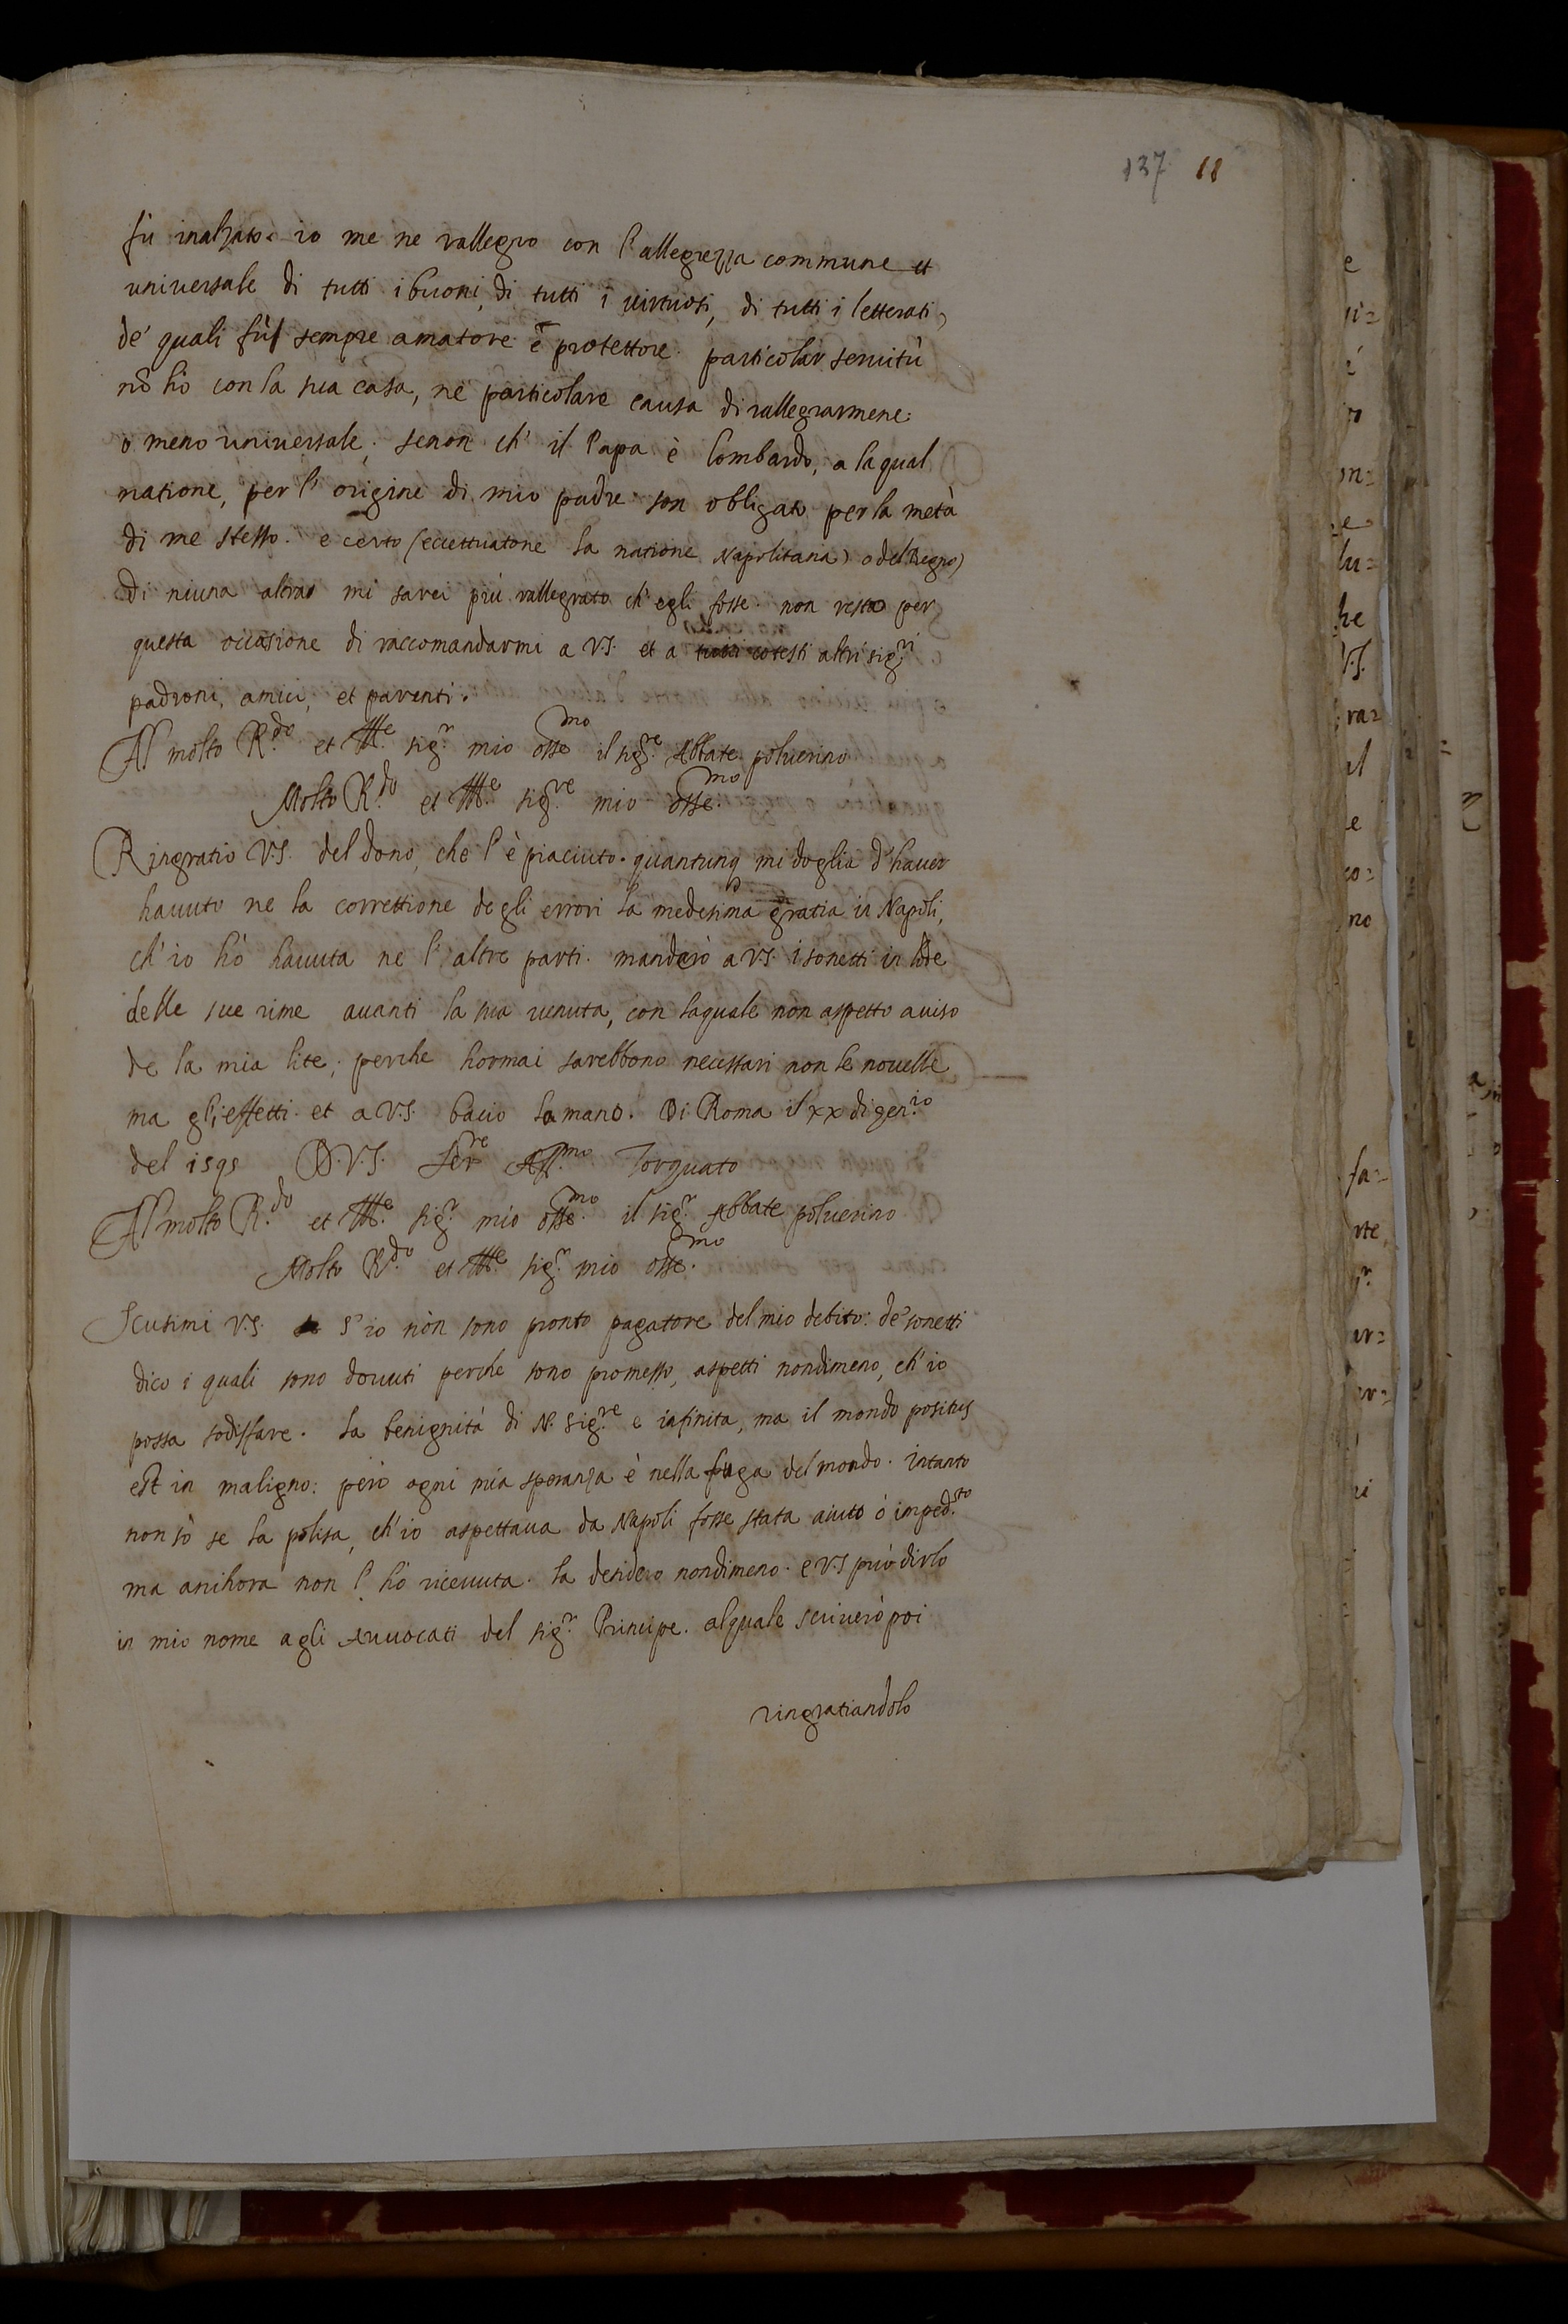 137 11
fù inalzato. io me ne rallegro con l'allegrezza commune et
universale di tutti i buoni, di tutti i virtuosi, di tutti i letterati,
de' quali fù sempre amatore è protettore. particolar seruitù
nõ hò con la sua casa, ne particolare causa di rallegrarmene:
o meno universale; senon ch' il Papa è Lombardo, a la qual
natione, per l' origine di mio padre son obligato per la metà
di me stesso. e certo (eccettuatone la natione Napolitana, o del Regno)
di niuna altra mi sarei più rallegrato ch' egli fosse. non resto per
questa occasione di raccomandarmi a V.S. et a cotesti altri sig.ri
padroni, amici, et parenti.
Al molto R.do et Ill.e sig.r mio osse.mo il sig.re Abbate poluerino
Molto R.do et Ill.e sig.re mio osse.mo
Ringratio V.S. del dono, che l' è piaciuto. quantunq mi doglia d' hauer
hauuto ne la correttione degli errori la medesima gratia in Napoli,
ch' io hò hauuta ne l' altre parti. manderò a V.S. i sonetti in lode
delle sue rime auanti la sua uenuta, con laquale non aspetto auiso
de la mia lite; perche hormai sarebbono necessari non le nouelle
ma gli effetti. et a V.S. bacio la mano. Di Roma il xx di gen.io
del 1595 D.V.S. Ser.re Aff.mo Torquato
Al molto R.do et Ill.e sig.r mio osse.mo il sig.r Abbate poluerino
Molto R.do et Ill.e sig.r mio osse.mo
Scusimi V.S. s' io non sono pronto pagatore del mio debito: de' sonetti
dico i quali sono douuti perche sono promesso, aspetti nondimeno, ch' io
possa sodisfare. la benignità di N. Sig.re e infinita, ma il mondo positus
est in maligno: però ogni mia speranza è nella fuga del mondo. intanto
non sò se la polisa, ch' io aspettaua da Napoli fosse stata aiuto ò imped.to
ma anchora non l' hò riceuuta. la desidero nondimeno. e V.S può dirlo
in mio nome agli Auuocati del sig.r Principe. alquale scriuerò poi
ringratiandolo